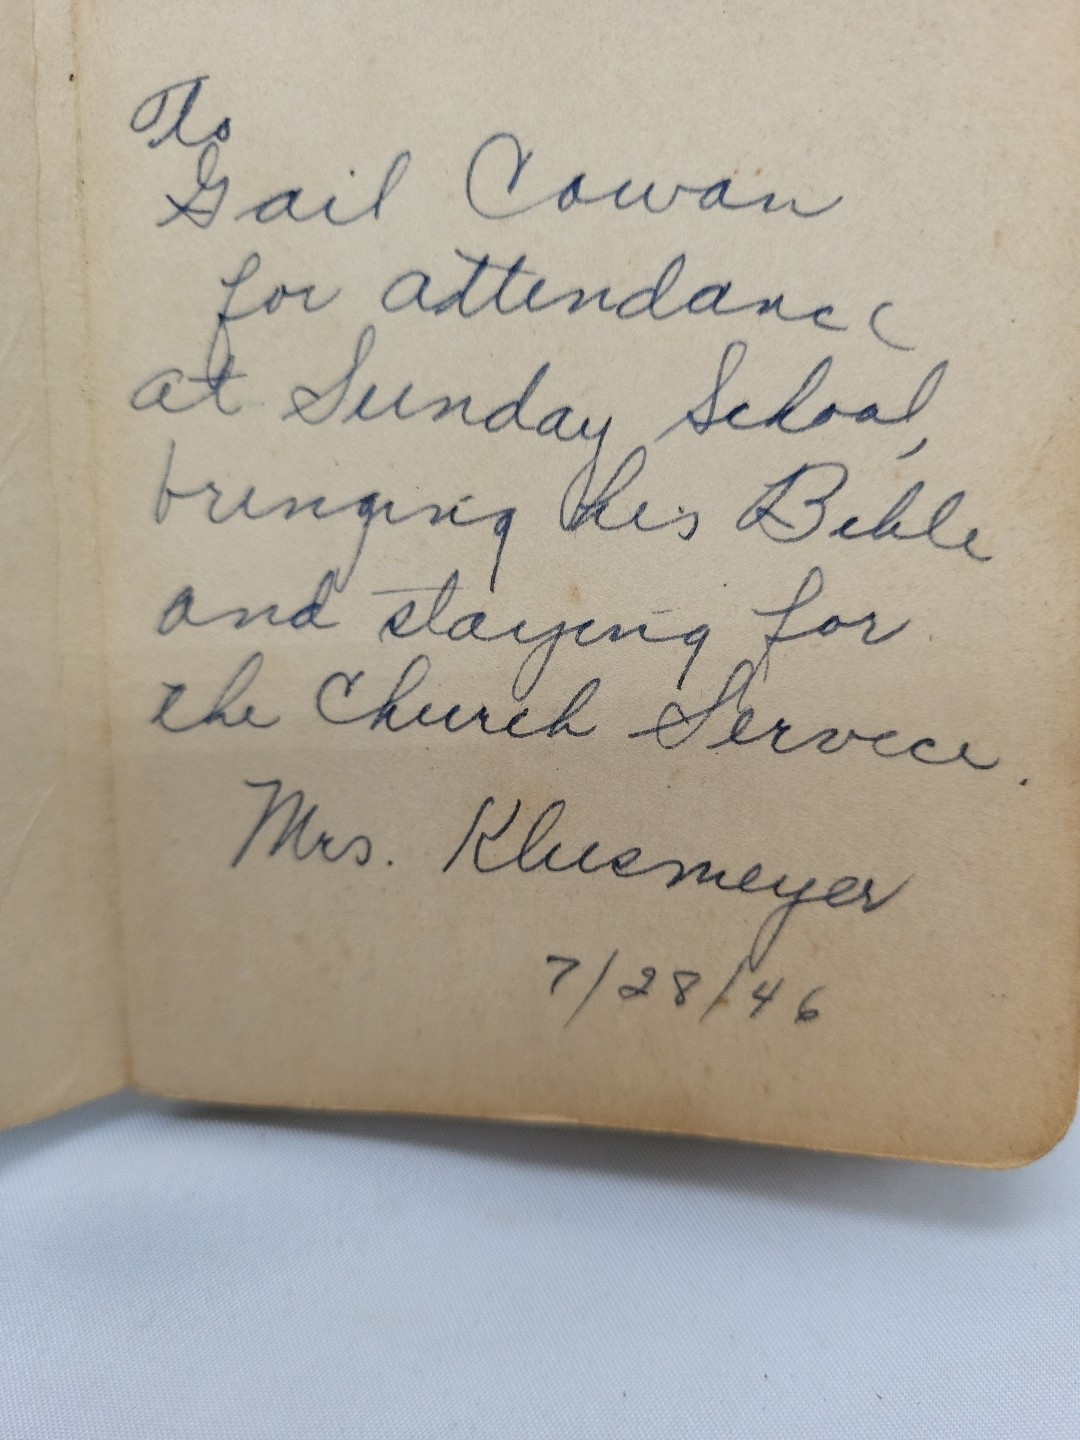 To
Gail Cowan
for attendance
at Sunday School,
bringing his Bible
and staying for
the Church Service.
Mrs. Klusmeyer
7/28/46